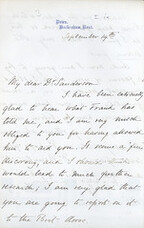 Down,
Beckenham, Kent.
September 19th
My dear Dr Sanderson
I have been extremely
glad to hear what Frank has
told me, and I am very much
obliged to you for having allowed
him to aid you. It seems a fine
discovery, and I should think
would lead to much further
research; I am very glad that
you are going to report on it
to the Brit. Assoc.